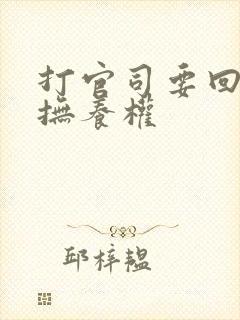 打官司要回
撫養權
邱梓韞